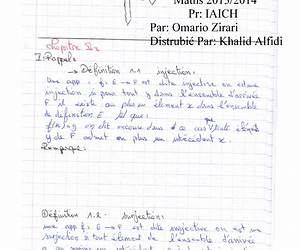 Maths 2013/2014
Pr: IAICH
Par: Omario Zirari
Distrubié Par: Khalid Alfidi
chapitre
I: Rappels
→ Définition 1.1 injection:
une app f: E → F est dite injective ou est une
injection si pour tout y dans l'ensemble d'arrivée
F il existe au plus un élément x dans l'ensemble
de définition E tel que
f(x) = y on dit encore dans ce cas élément
y de F admet au plus un antécédent x.
Remarque:
Définition 1.2 - surjection:
une app f: E → F est dite surjective ou est une
surjection si tout élément de l'ensemble d'arrivée
a au moins un antécédent